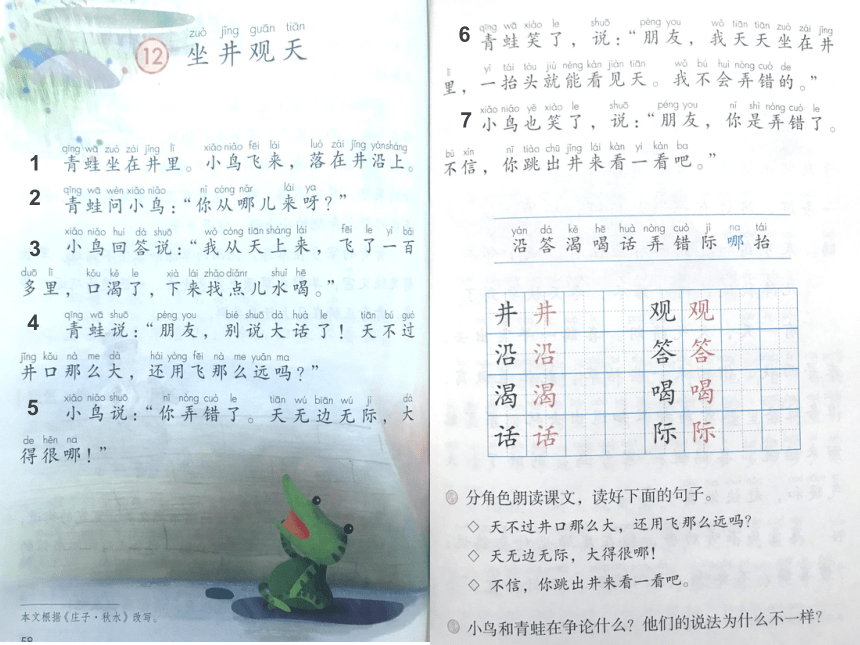 zuò jǐng guān tiān
12 坐井观天
qīng wā zuò zài jǐng lǐ xiǎo niǎo fēi lái luò zài jǐng yán shàng
1 青蛙坐在井里。小鸟飞来，落在井沿上。
qīng wā wèn xiǎo niǎo nǐ cóng nǎr lái ya
2 青蛙问小鸟：“你从哪儿来呀？”
xiǎo niǎo huí dá shuō wǒ cóng tiān shàng lái fēi le yì bǎi
3 小鸟回答说：“我从天上来，飞了一百
duō lǐ kǒu kě le xià lái zhǎo diǎnr shuǐ hē
多里，口渴了，下来找点儿水喝。”
qīng wā shuō péng you bié shuō dà huà le tiān bú guò
4 青蛙说：“朋友，别说大话了！天不过
jǐng kǒu nà me dà hái yòng fēi nà me yuǎn ma
井口那么大，还用飞那么远吗？”
xiǎo niǎo shuō nǐ nòng cuò le tiān wú biān wú jì dà
5 小鸟说：“你弄错了。天无边无际，大
de hěn na
得很哪！”
本文根据《庄子·秋水》改写。
58
qīng wā xiào le shuō péng you wǒ tiān tiān zuò zài jǐng
6 青蛙笑了，说：“朋友，我天天坐在井
lǐ yì tái tóu jiù néng kàn jiàn tiān wǒ bú huì nòng cuò de
里，一抬头就能看见天。我不会弄错的。”
xiǎo niǎo yě xiào le shuō péng you nǐ shì nòng cuò le
7 小鸟也笑了，说：“朋友，你是弄错了。
bú xìn nǐ tiào chū jǐng lái kàn yí kàn ba
不信，你跳出井来看一看吧。”
yán dá kě hē huà nòng cuò jì na tái
沿答渴喝话弄错际哪抬
井 井 观 观
沿 沿 答 答
渴 渴 喝 喝
话 话 际 际
分角色朗读课文，读好下面的句子。
◇ 天不过井口那么大，还用飞那么远吗？
◇ 天无边无际，大得很哪！
◇ 不信，你跳出井来看一看吧。
小鸟和青蛙在争论什么？他们的说法为什么不一样？